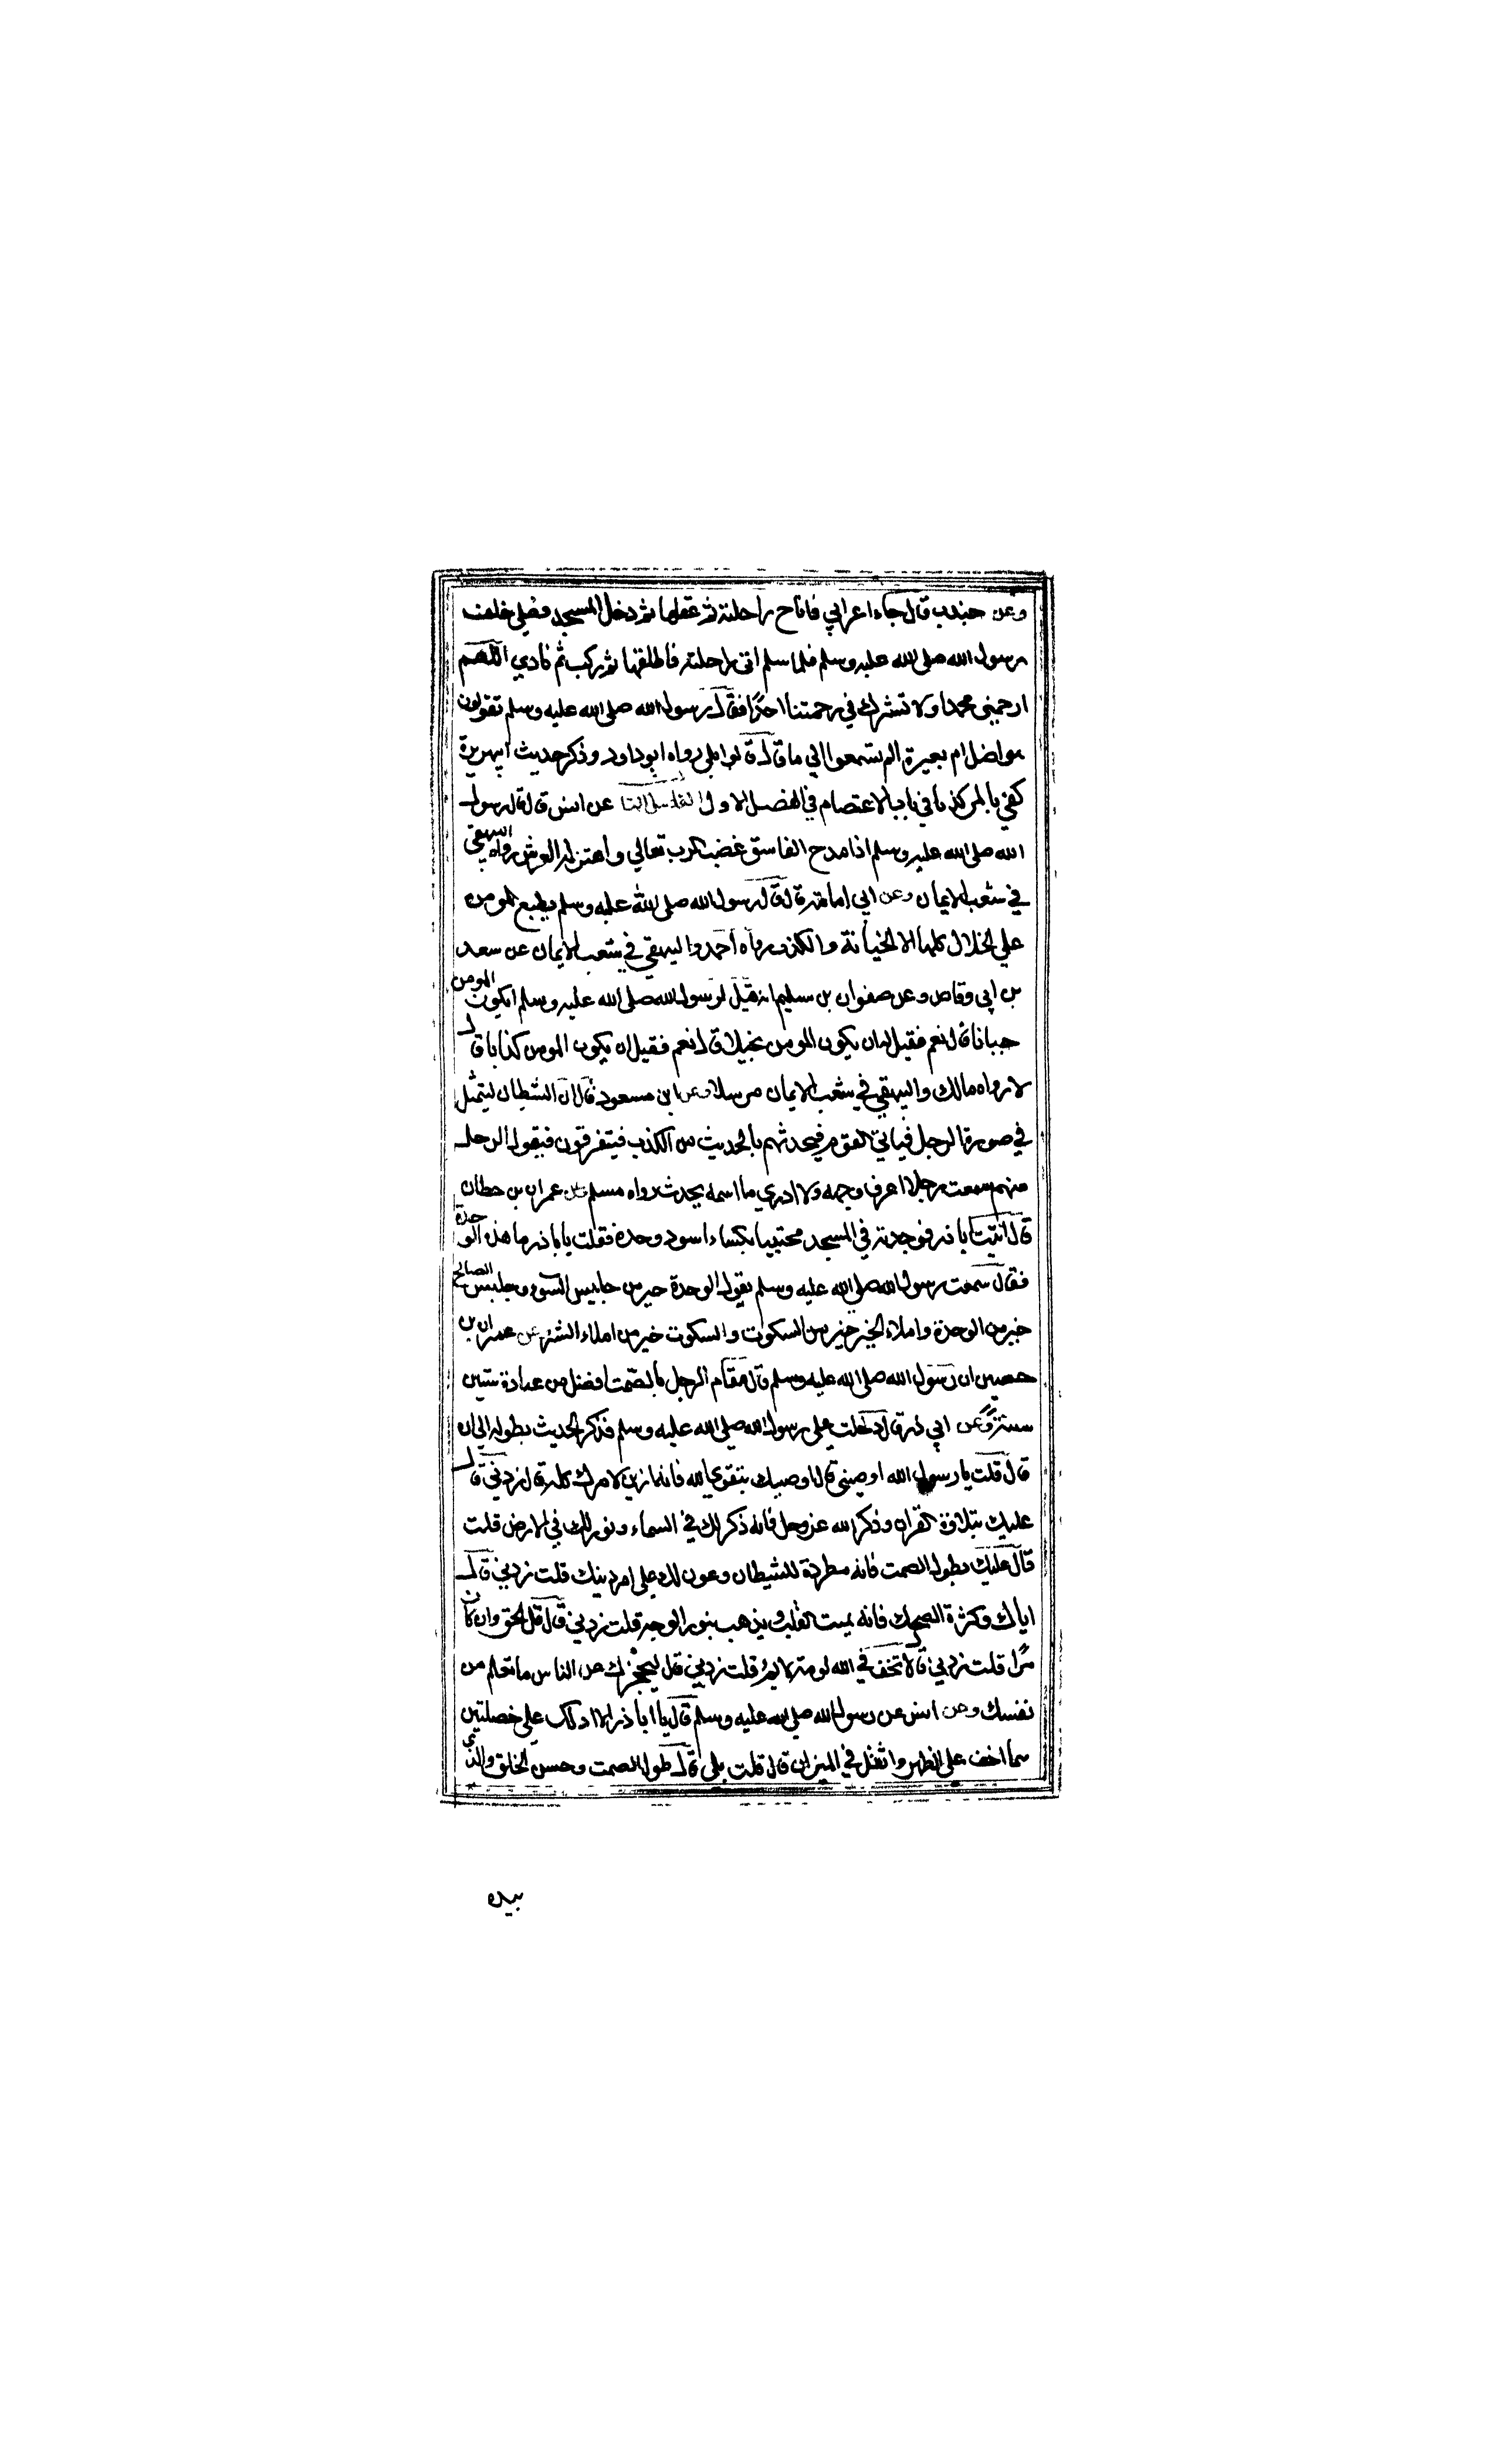 وعن جندب قال جاء اعرابي فاناخ راحلته ثم عقلها ثم دخل المسجد فصلي خلف
رسول الله صلى الله عليه وسلم فلما سلم اتى راحلته فاطلقها ثم ركب ثم نادي اللهم
ارحمني محمدا ولا تشرك في رحمتنا احدًا فقال رسول الله صلى الله عليه وسلم تقولون
هواضل ام بعيرة الم تسمعوا الي ما قال قالوا بلى رواه ابو داود وذكر حديث ابي هريرة
كفي بالمرء كذبا في باب الاعتصام في الفصل الاول الفصل الثا عن انس قال قال رسول
الله صلى الله عليه وسلم اذا مدح الفاسق غضب الرب تعالي واهتز له العرش رواه البيهقي
في شعب الايمان وعن ابي امامة قال قال رسول الله صلى الله عليه وسلم يطبع المومن
علي الخلال كلها الا الخيانة والكذب رواه احمد والبيهقي في شعب الايمان عن سعد
بن ابي وقاص وعن صفوان بن سليم انه قيل لرسول الله صلى الله عليه وسلم ايكون المومن
جبانا قال نعم فقيل له ان يكون المومن بخيلا قال نعم فقيل ان يكون المومن كذابا قال
لا رواه مالك والبيهقي في شعب الايمان مرسلا وعن ابن مسعود قال ان الشيطان ليتمثل
في صورة الرجل فياتي القوم فيحدثهم بالحديث من الكذب فيتفرقون فيقول الرجل
منهم سمعت رجلا اعرف وجهه ولا ادري ما اسمه يحدث رواه مسلم وعن عمران بن حطان
قال اتيت اباذر فوجدته في المسجد محتبيا بكساء اسود وحده فقلت يا اباذر ما هذه الوحدة
فقال سمعت رسول الله صلى الله عليه وسلم يقول الوحدة خير من جليس السوء وجليس الصالح
خير من الوحدة واملاء الخير خير من السكوت والسكوت خير من املاء الشر عن عمران بن
حصين ان رسول الله صلى الله عليه وسلم قال مقام الرجل بالصمت افضل من عبادة ستين
سنة وعن ابي ذر قال دخلت على رسول الله صلى الله عليه وسلم فذكر الحديث بطوله الي ان
قال قلت يا رسول الله اوصني قال اوصيك بتقوي الله فانه ازين لامرك كله قال زدني قال
عليك بتلاوة القران وذكر الله عز وجل فانه ذكر لك في السماء ونور لك في الارض قلت
قال عليك بطول الصمت فانه مطردة للشيطان وعون لك على امر دينك قلت زدني قال
اياك وكثرة الضحك فانه يميت القلب ويذهب بنور الوجه قلت زدني قال قل الحق وان كان
مرًا قلت زدني قال لا تخف في الله لومة لايم قلت زدني قال ليحجزك عن الناس ما تعلم من
نفسك وعن انس عن رسول الله صلى الله عليه وسلم قال يا ابا ذر الا ادلك علي خصلتين
هما اخف على الظهر واثقل في الميزان قال قلت بلى قال طول الصمت وحسن الخلق والذي
بيده